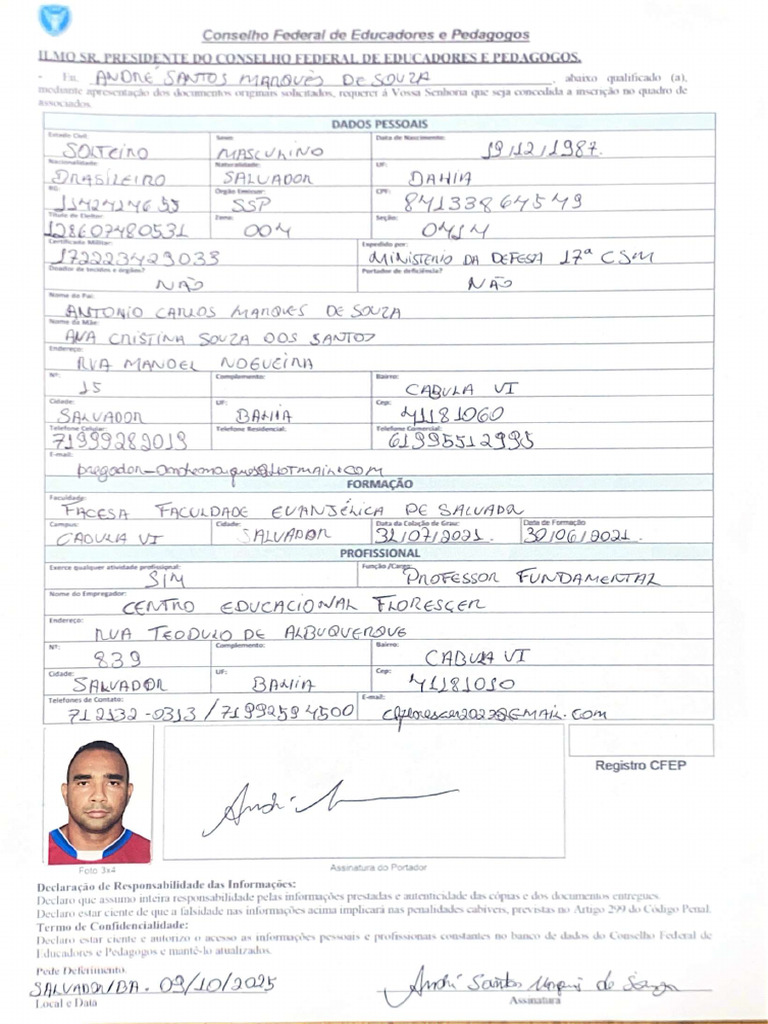 Conselho Federal de Educadores e Pedagogos
ILMO SR. PRESIDENTE DO CONSELHO FEDERAL DE EDUCADORES E PEDAGOGOS.
- Eu, ANDRÉ SANTOS MARQUES DE SOUZA, abaixo qualificado (a),
mediante apresentação dos documentos originais solicitados, requerer á Vossa Senhoria que seja concedida a inscrição no quadro de
associados.
DADOS PESSOAIS
Estado Civil: Sexo: Data de Nascimento:
SOLTEIRO MASCULINO 19/12/1987.
Nacionalidade: Naturalidade: UF:
BRASILEIRO SALVADOR BAHIA
RG: Órgão Emissor: CPF:
SSP 84133864549
Título de Eleitor: Zona: Seção:
128607480531 004 0414
Certificado Militar: Expedido por:
172223423033 MINISTERIO DA DEFESA 17ª CSM
Doador de tecidos e órgãos? Portador de deficiência?
NÃO NÃO
Nome do Pai:
ANTONIO CARLOS MARQUES DE SOUZA
Nome da Mãe:
ANA CRISTINA SOUZA DOS SANTOS
Endereço:
RUA MANOEL NOGUEIRA
Nº: Complemento: Bairro:
15 CABULA VI
Cidade: UF: Cep:
SALVADOR BAHIA 41181060
Telefone Celular: Telefone Residencial: Telefone Comercial:
71999282019 61995512995
E-mail:
FORMAÇÃO
Faculdade:
FACESA FACULDADE EVANJÉLICA DE SALVADOR
Campus: Cidade: Data da Colação de Grau: Data de Formação
CABULA VI SALVADOR 31/07/2021. 30/06/2021.
PROFISSIONAL
Exerce qualquer atividade profissional: Função /Cargo:
SIM PROFESSOR FUNDAMENTAL
Nome do Empregador:
CENTRO EDUCACIONAL FLORESCER
Endereço:
RUA TEODULO DE ALBUQUERQUE
Nº: Complemento: Bairro:
839 CABULA VI
Cidade: UF: Cep:
SALVADOR BAHIA 41181010
Telefones de Contato: E-mail:
71 2132-0313 / 71992594500
Registro CFEP
Foto 3x4
Assinatura do Portador
Declaração de Responsabilidade das Informações:
Declaro que assumo inteira responsabilidade pelas informações prestadas e autenticidade das cópias e dos documentos entregues.
Declaro estar ciente de que a falsidade nas informações acima implicará nas penalidades cabíveis, previstas no Artigo 299 do Código Penal.
Termo de Confidencialidade:
Declaro estar ciente e autorizo o acesso as informações pessoais e profissionais constantes no banco de dados do Conselho Federal de
Educadores e Pedagogos e mantê-lo atualizados.
Pede Deferimento.
SALVADOR/BA. 09/10/2025 André Santos Marques de Souza
Local e Data Assinatura